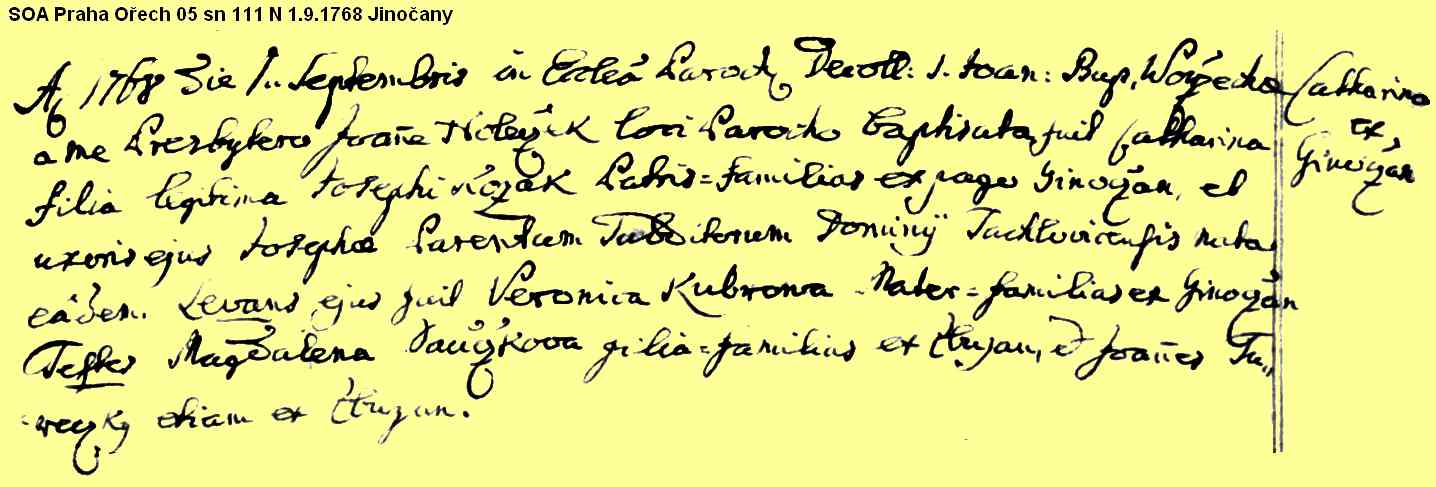 SOA Praha Ořech 05 sn 111 N 1.9.1768 Jinočany
A 1768 Die 1. Septembris in Ecclâ Paroch Decoll: S. Joan: Bap. Worzecho
a me Presbytero Joañe loci Parocho baptisata fuit Catharina
filia legitima Josephi Kozak Patris=familias ex pago Ginoczan, et
uxoris ejus Josephæ Parentum Subditorum Dominij Tachlovicensis nata
eâdem. Levans ejus fuit Veronica Kubrowa Mater=familias ex Ginoczan
Testes Magdalena filia=familias ex et Joañes Tu,,
reczky etiam ex
Catharina
ex
Ginoczan